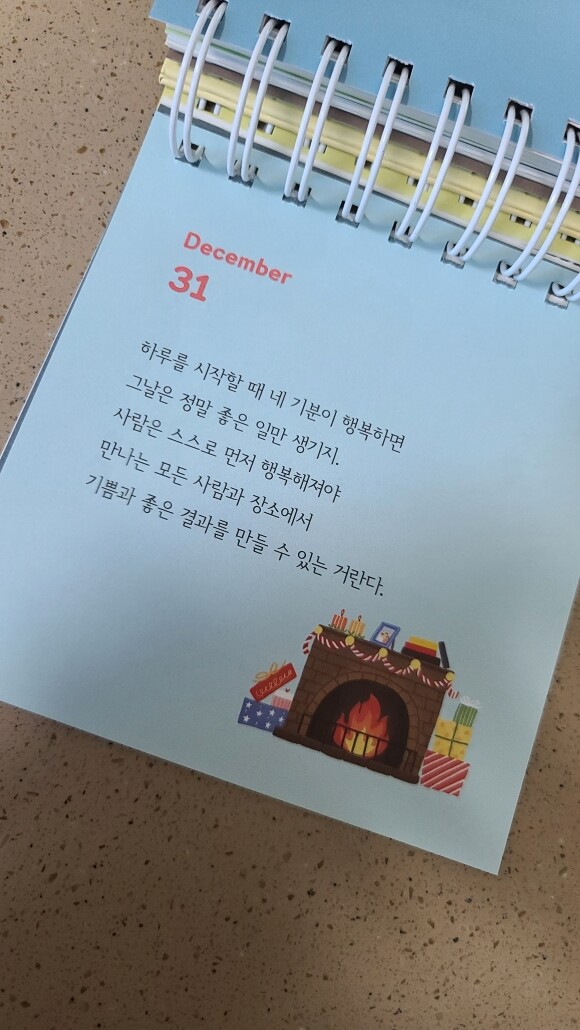 December
31
하루를 시작할 때 네 기분이 행복하면
그날은 정말 좋은 일만 생기지.
사람은 스스로 먼저 행복해져야
만나는 모든 사람과 장소에서
기쁨과 좋은 결과를 만들 수 있는 거란다.